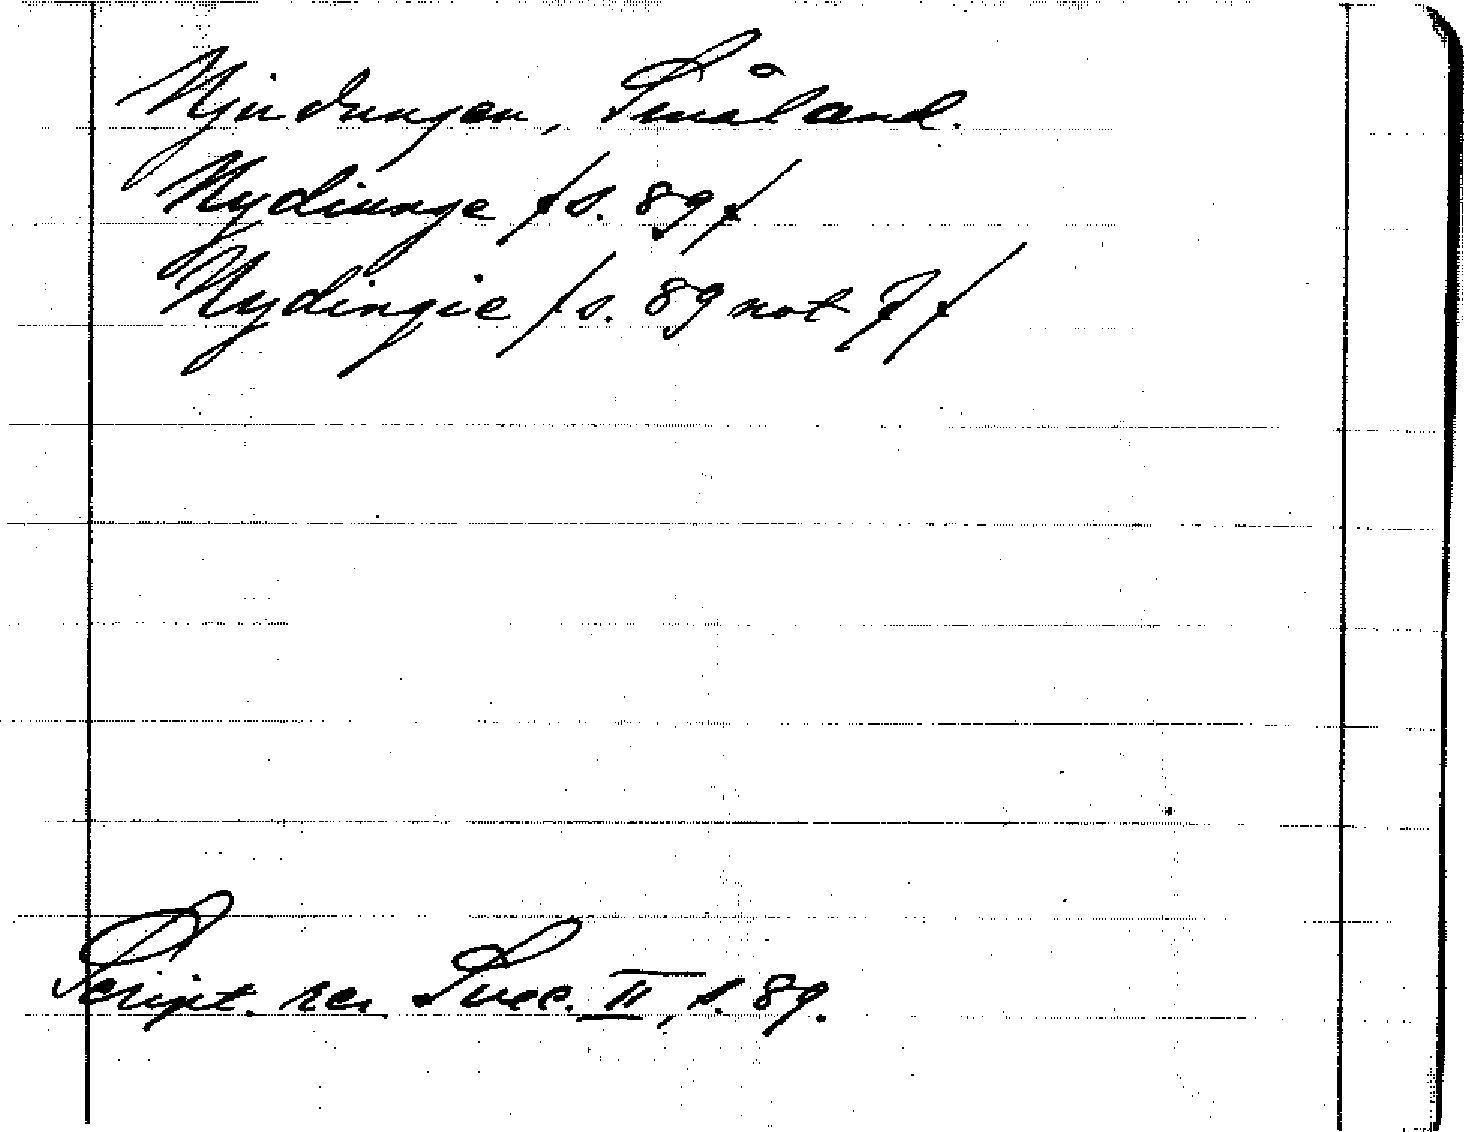 Njudungen, Småland.
Nydiunge /s. 89/
Nydingie /s. 89 not 7/
Script. rer Suec. II, s. 89.